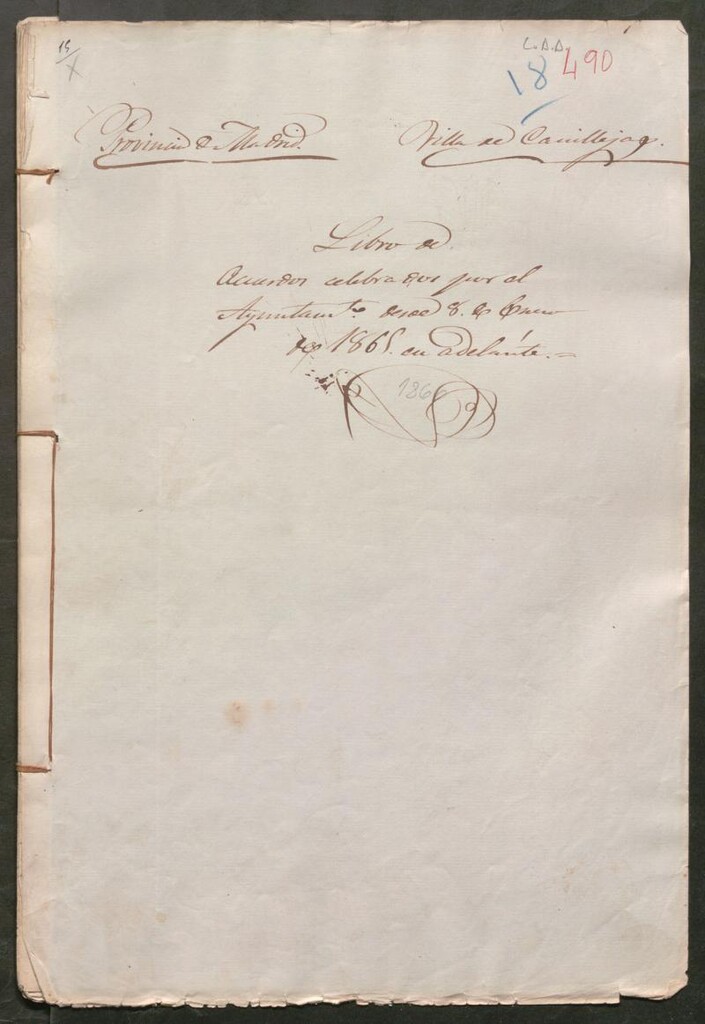 15
C.A.A.
18 490
Provincia de Madrid.
Villa de Canillejas.
Libro de
Acuerdos celebrados por el
Ayuntamto. desde 8. de Enero
de 1865. en adelánte.=